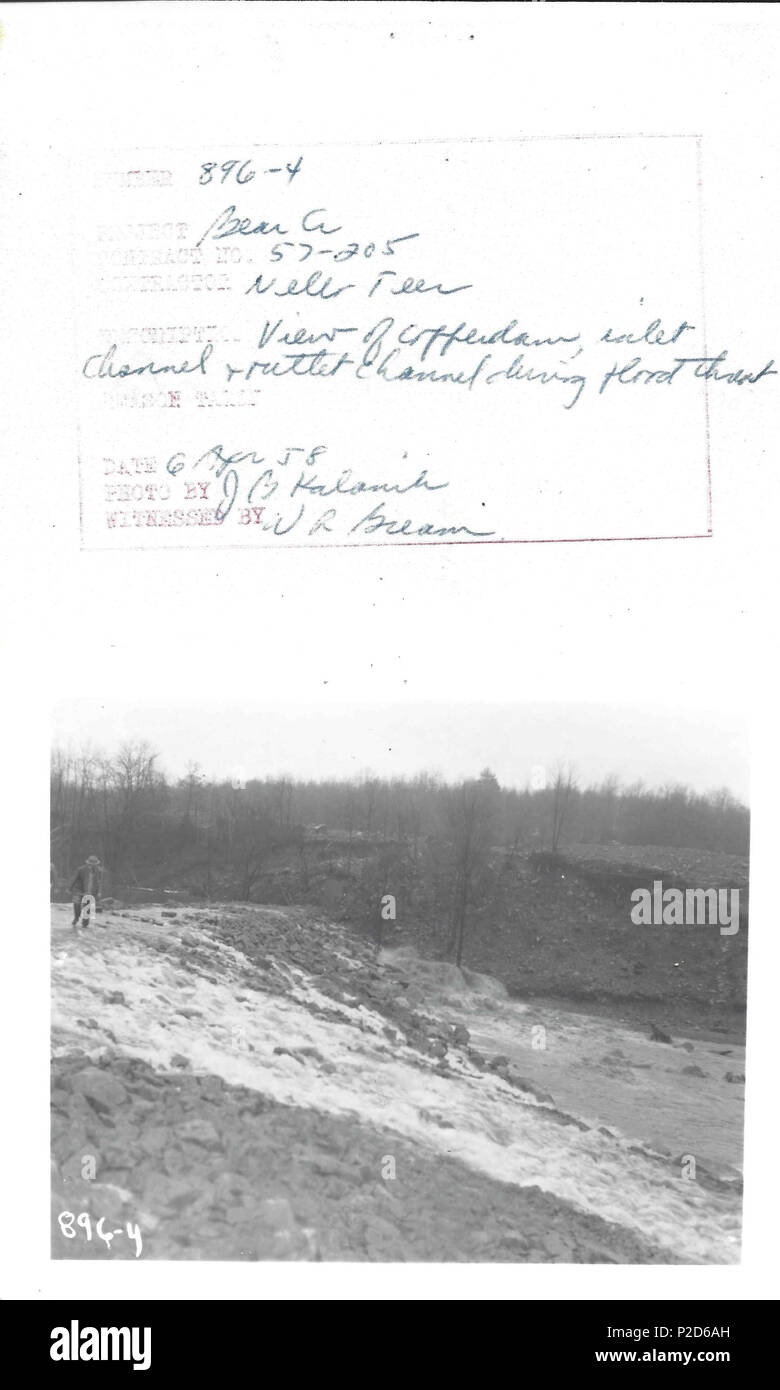 NUMBER 896-4
PROJECT Bear Cr
CONTRACT NO. 57-205
CONTRACTOR Nello Teer
DESCRIPTION View of cofferdam, inlet
channel & outlet channel during flood that
REASON TAKEN
DATE 6 Apr 58
PHOTO BY J B
WITNESSED BY W R Bream
896-4
alamy
a
alamy
Image ID: P2D6AH
www.alamy.com